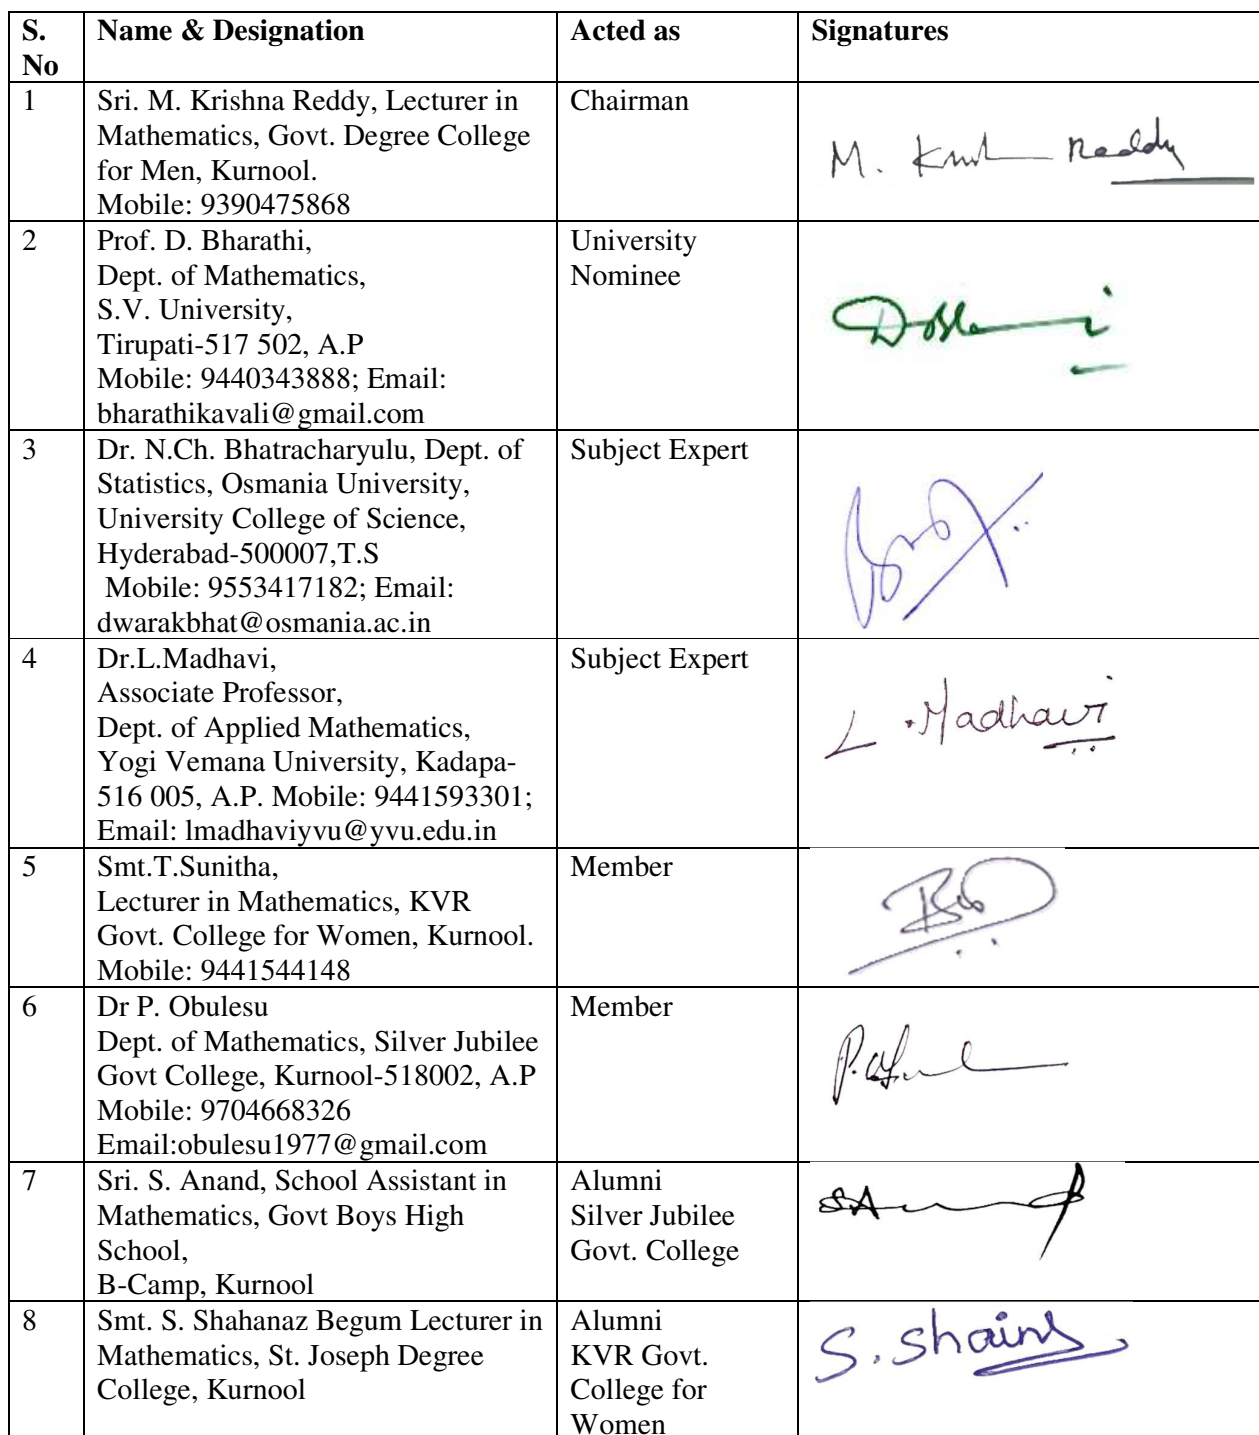 S. No
Name & Designation
Acted as
Signatures
1
Sri. M. Krishna Reddy, Lecturer in
Mathematics, Govt. Degree College
for Men, Kurnool.
Mobile: 9390475868
Chairman
M. Reddy
2
Prof. D. Bharathi,
Dept. of Mathematics,
S.V. University,
Tirupati-517 502, A.P
Mobile: 9440343888; Email:
bharathikavali@gmail.com
University
Nominee
3
Dr. N.Ch. Bhatracharyulu, Dept. of
Statistics, Osmania University,
University College of Science,
Hyderabad-500007,T.S
Mobile: 9553417182; Email:
dwarakbhat@osmania.ac.in
Subject Expert
4
Dr.L.Madhavi,
Associate Professor,
Dept. of Applied Mathematics,
Yogi Vemana University, Kadapa-
516 005, A.P. Mobile: 9441593301;
Email: lmadhaviyvu@yvu.edu.in
Subject Expert
L. Madhavi
5
Smt.T.Sunitha,
Lecturer in Mathematics, KVR
Govt. College for Women, Kurnool.
Mobile: 9441544148
Member
6
Dr P. Obulesu
Dept. of Mathematics, Silver Jubilee
Govt College, Kurnool-518002, A.P
Mobile: 9704668326
Email:obulesu1977@gmail.com
Member
7
Sri. S. Anand, School Assistant in
Mathematics, Govt Boys High
School,
B-Camp, Kurnool
Alumni
Silver Jubilee
Govt. College
8
Smt. S. Shahanaz Begum Lecturer in
Mathematics, St. Joseph Degree
College, Kurnool
Alumni
KVR Govt.
College for
Women